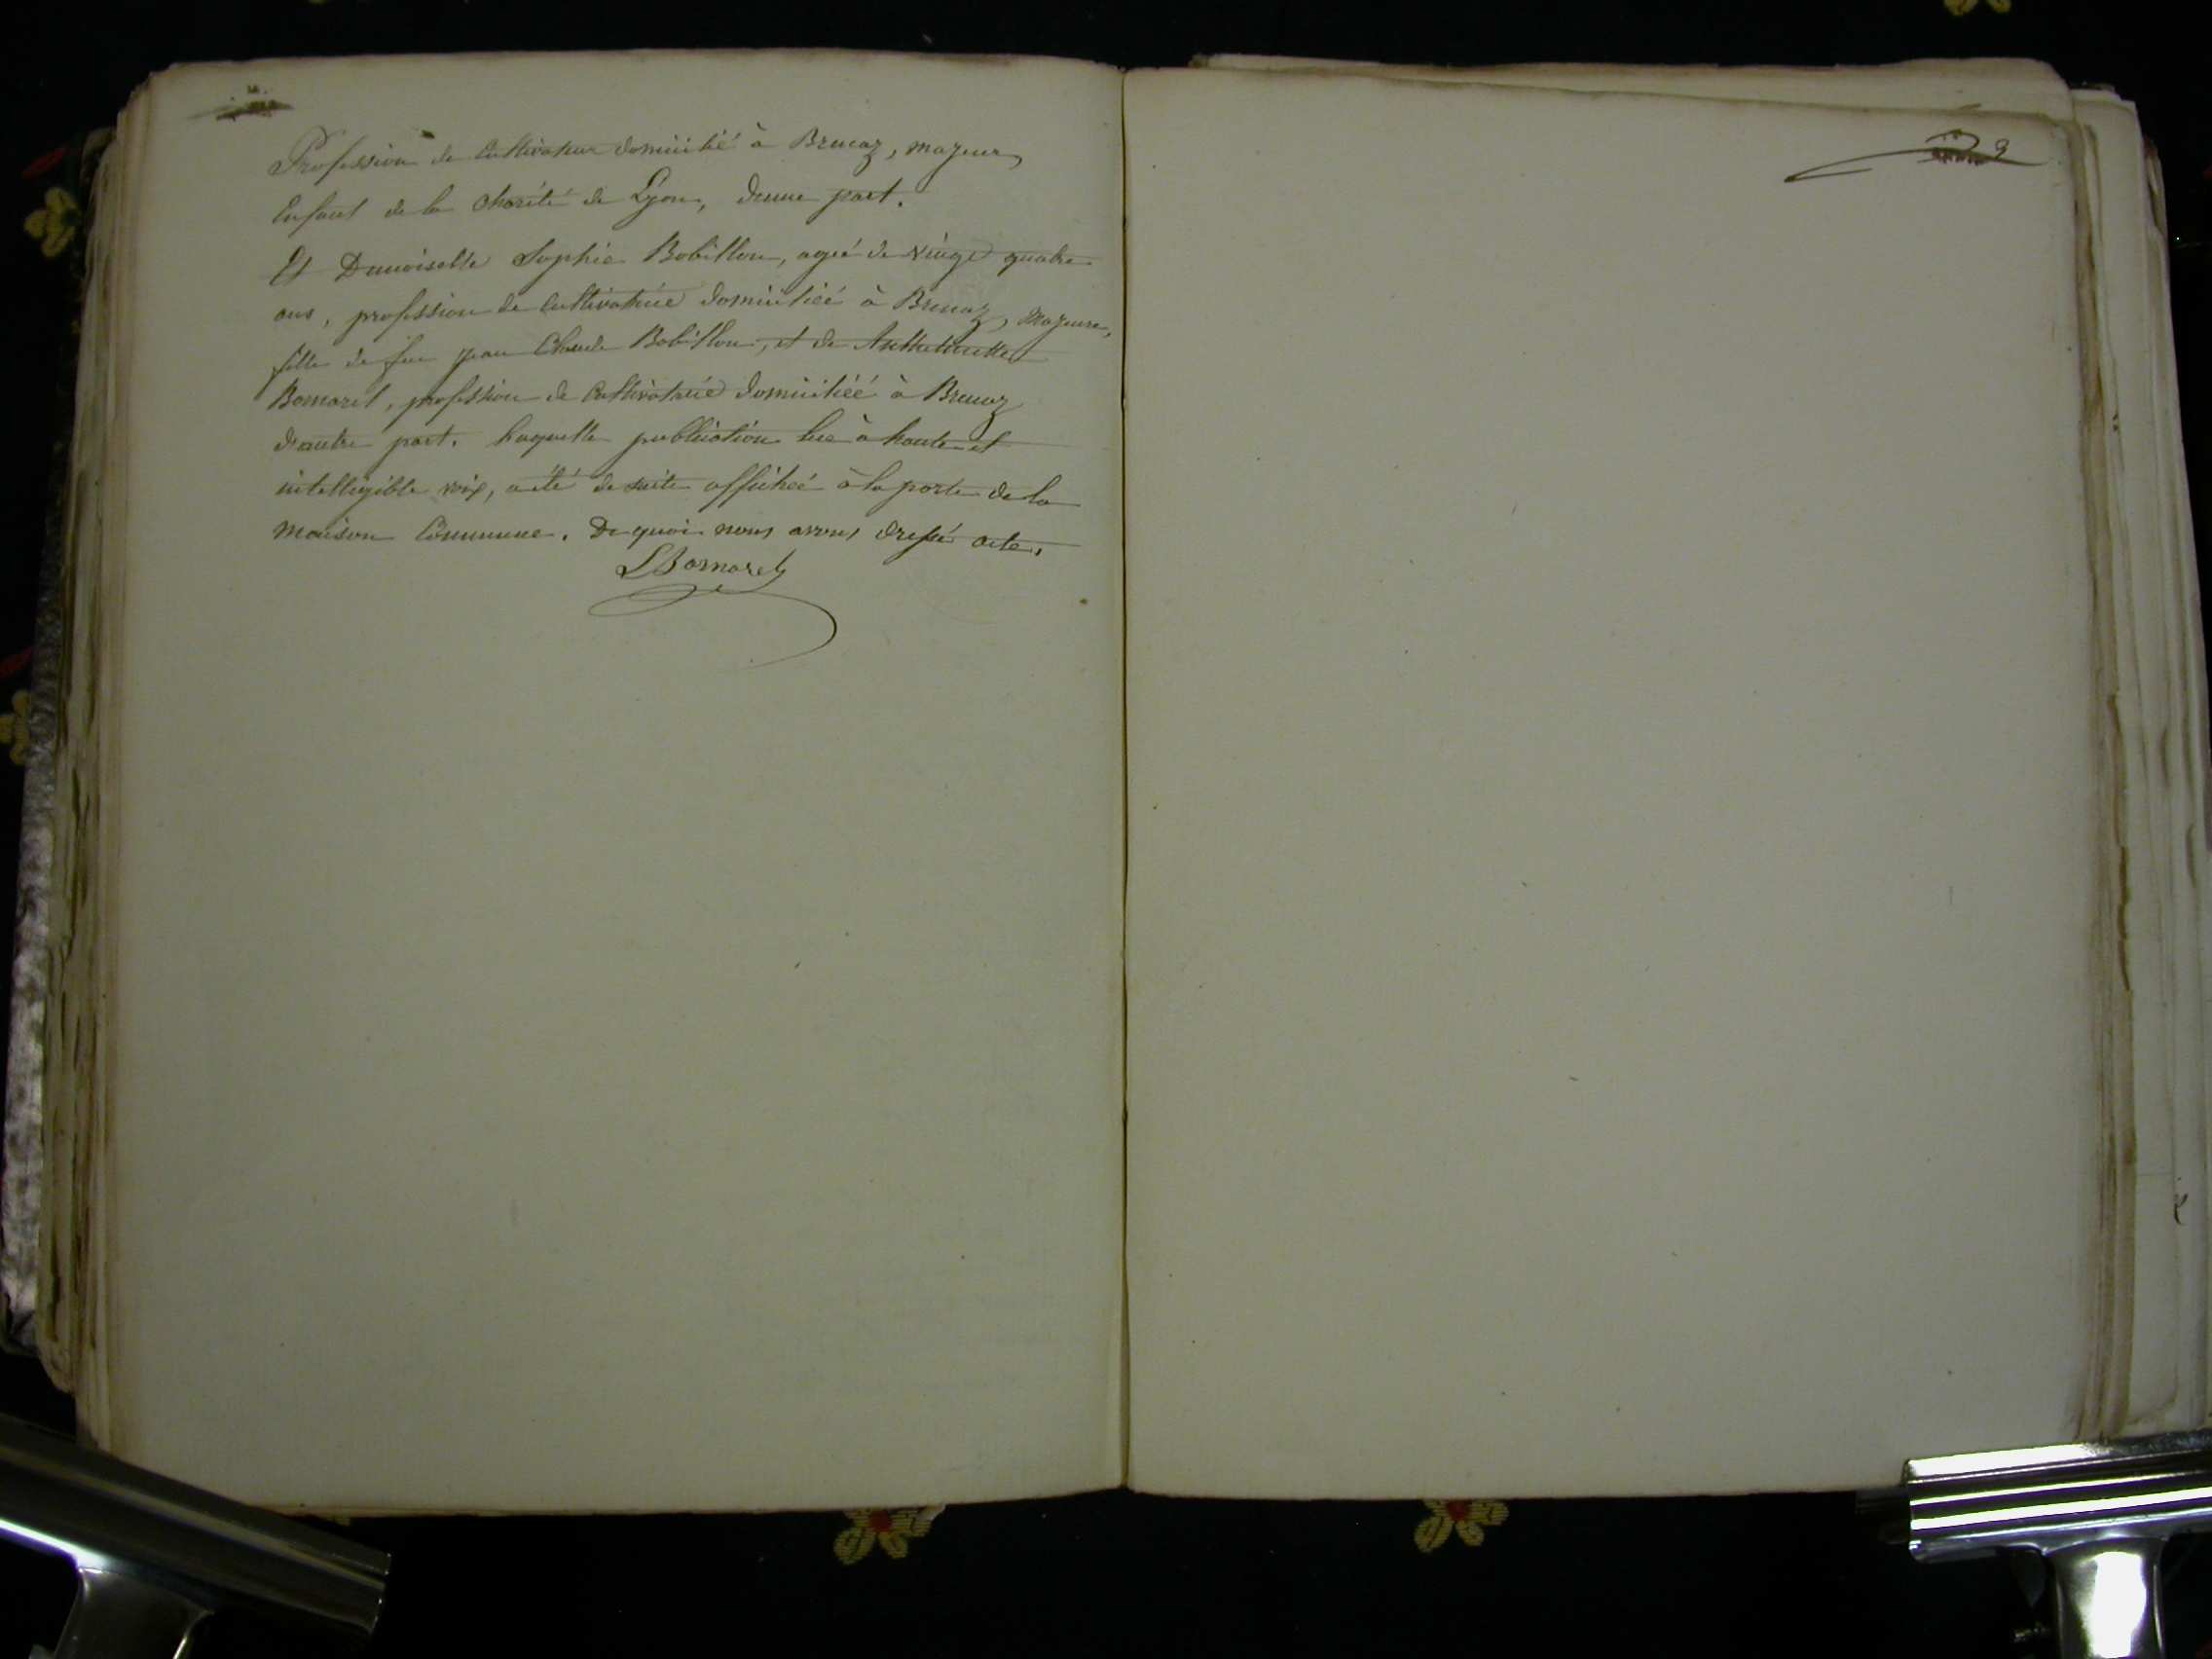 Profession de cultivateur domicilié à Brenaz, majeur,
Enfant de la charité de Lyon, d'une part.
Et Demoiselle Sophie Bobillon, agée de vingt quatre
ans, profession de cultivatrice domiciliée à Brenaz, majeure,
fille de feu Jean Claude Bobillon, et de
Bornarel, profession de cultivatrice domiciliée à Brenaz
d'autre part. Laquelle publication lue à haute et
intelligible voix, a été de suite affichée à la porte de la
maison Commune. De quoi nous avons dressé acte.
LBornarel
9